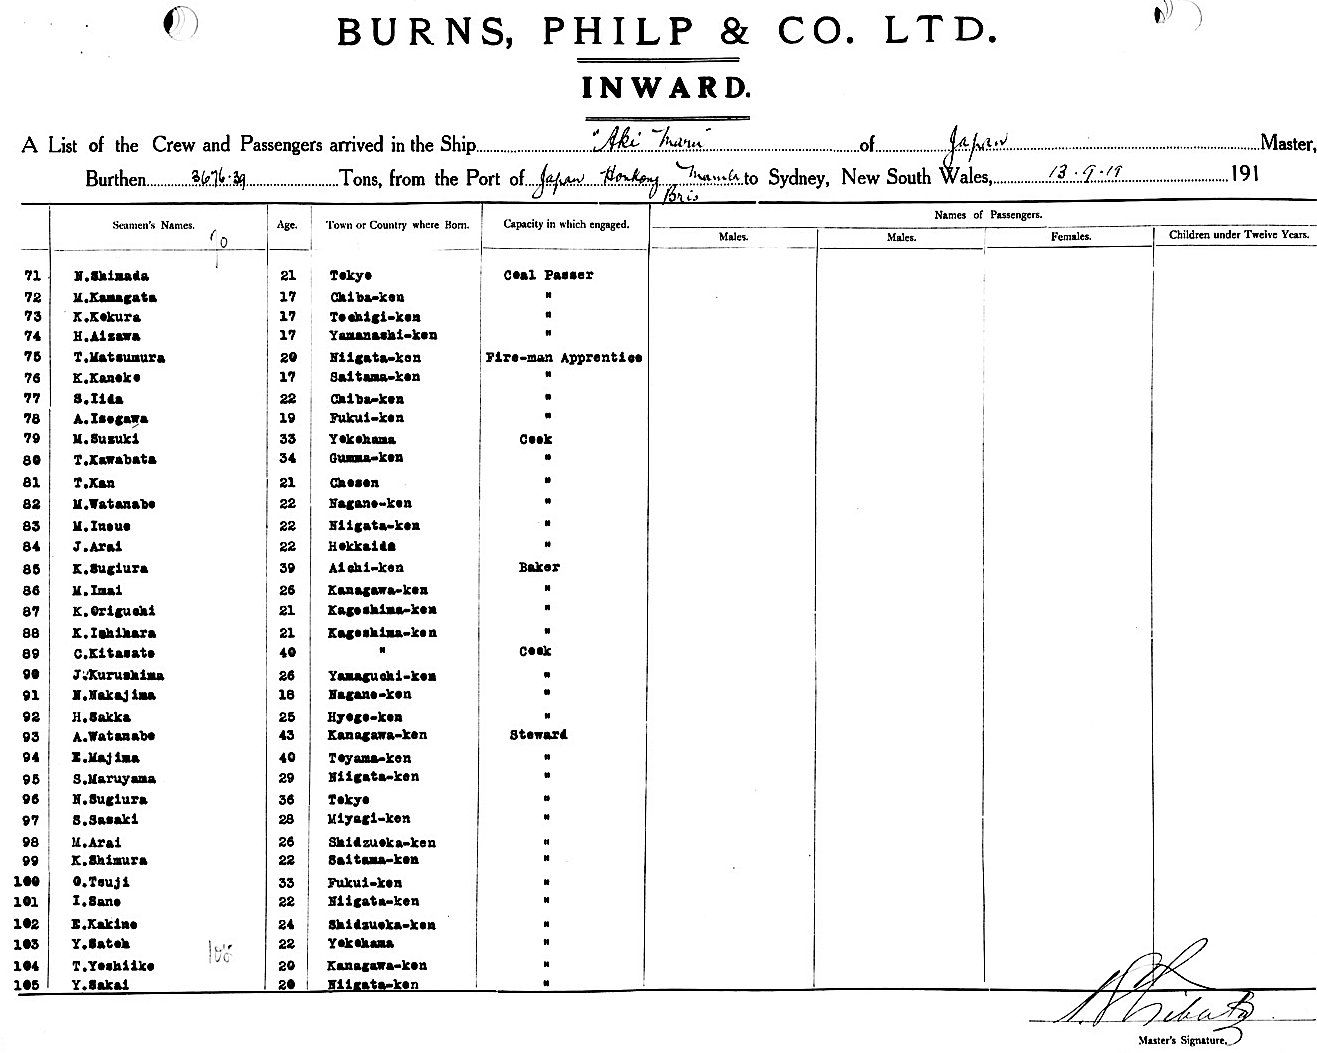 BURNS, PHILP & CO. LTD.
INWARD.
A List of the Crew and Passengers arrived in the Ship "Aki Maru" of Japan Master,
Burthen 3676.39 Tons, from the Port of Japan Honkong Manila to Sydney, New South Wales, 13.9.19 191
Bris
Seamen's Names. Age. Town or Country where Born. Capacity in which engaged. Names of Passengers.
Males. Males. Females. Children under Twelve Years.
71 N.Shimada 21 Tokyo Coal Passer
72 M.Kamagata 17 Chiba-ken "
73 K.Kokura 17 Tochigi-ken "
74 H.Aizawa 17 Yamanashi-ken "
75 T.Matsumura 20 Niigata-ken Fire-man Apprentice
76 K.Kaneko 17 Saitama-ken "
77 S.Iida 22 Chiba-ken "
78 A.Isogawa 19 Fukui-ken "
79 M.Suzuki 33 Yokohama Cook
80 T.Kawabata 34 Gumma-ken "
81 T.Kan 21 Chosen "
82 M.Watanabe 22 Nagano-ken "
83 M.Inoue 22 Niigata-ken "
84 J.Arai 22 Hokkaido "
85 K.Sugiura 39 Aichi-ken Baker
86 M.Imai 26 Kanagawa-ken "
87 K.Origuchi 21 Kagoshima-ken "
88 K.Ishihara 21 Kagoshima-ken "
89 C.Kitasato 40 " Cook
90 J.Kurushima 26 Yamaguchi-ken "
91 N.Nakajima 18 Nagano-ken "
92 H.Sakka 25 Hyogo-ken "
93 A.Watanabe 43 Kanagawa-ken Steward
94 E.Majima 40 Toyama-ken "
95 S.Maruyama 29 Niigata-ken "
96 N.Sugiura 36 Tokyo "
97 S.Sasaki 28 Miyagi-ken "
98 M.Arai 26 Shidzuoka-ken "
99 K.Shimura 22 Saitama-ken "
100 O.Tsuji 33 Fukui-ken "
101 I.Sano 22 Niigata-ken "
102 E.Kakino 24 Shidzuoka-ken "
103 Y.Satoh 22 Yokohama "
104 T.Yoshiike 20 Kanagawa-ken "
105 Y.Sakai 20 Niigata-ken "
Master's Signature.